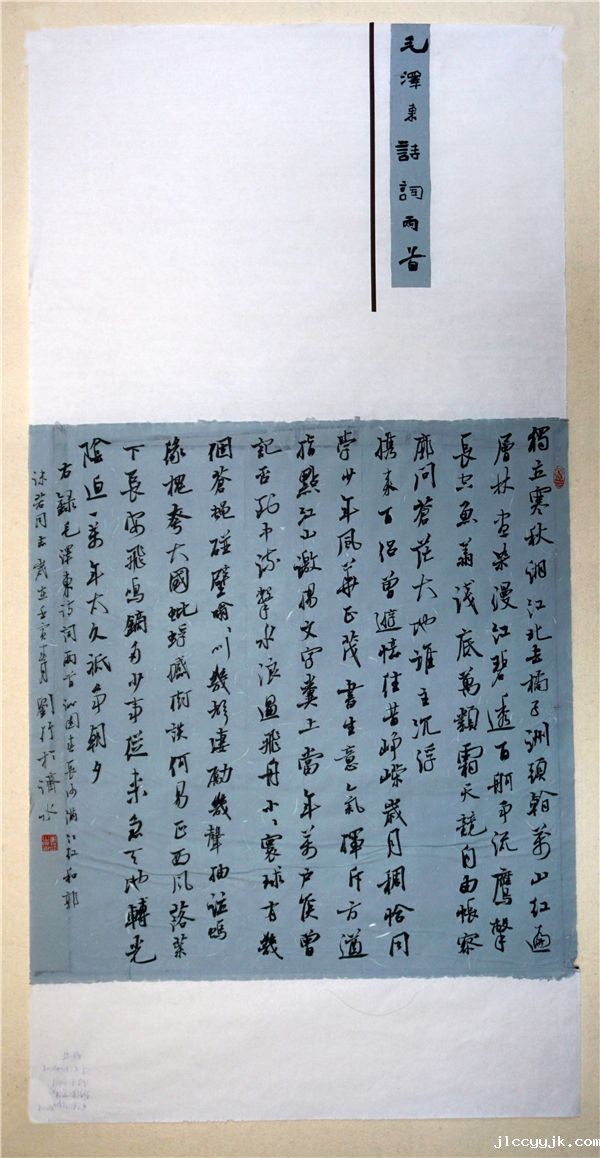 毛澤東詩詞兩首
獨立寒秋湘江北去橘子洲頭看萬山紅遍
層林盡染漫江碧透百舸爭流鷹擊
長空魚翔淺底萬類霜天競自由悵寥
廓問蒼茫大地誰主沉浮
攜來百侶曾遊憶往昔崢嶸歲月稠恰同
學少年風華正茂書生意氣揮斥方遒
指點江山激揚文字糞土當年萬戶侯曾
記否到中流擊水浪遏飛舟小小寰球有幾
個蒼蠅碰壁嗡嗡叫幾聲淒厲幾聲抽泣螞
緣槐夸大國蚍蜉撼樹談何易正西風落葉
下長安飛鳴鏑多少事從來急天地轉光
陰迫一萬年太久祇爭朝夕
右錄毛澤東詩詞兩首沁園春長沙滿江紅和郭
沫若同志歲在壬寅月劉於濟水
jlccyyjk.com